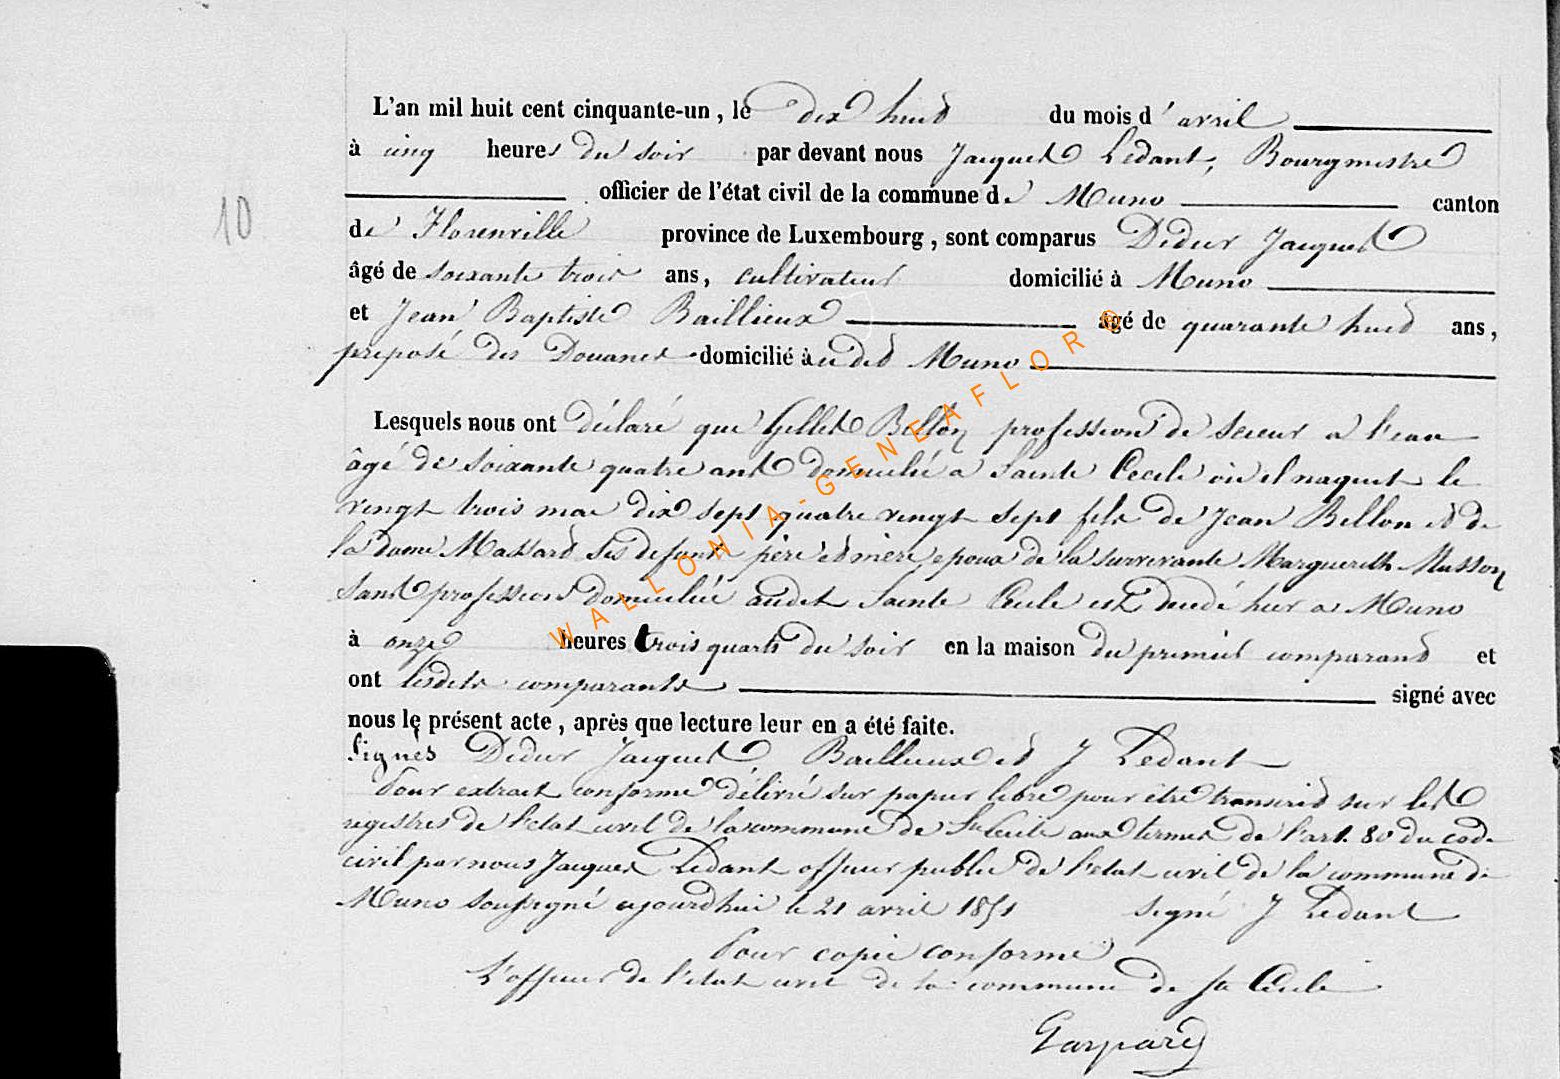 L'an mil huit cent cinquante-un, le dix huit du mois d'avril
à cinq heures du soir par devant nous Jacques Ledant, Bourgmestre
officier de l'état civil de la commune de Muno canton
10
de Florenville province de Luxembourg, sont comparus Didier Jacques
âgé de soixante trois ans, cultivateur domicilié à Muno
et Jean Baptiste Baillieux âgé de quarante huit ans,
preposé des Douanes domicilié à udit Muno
Lesquels nous ont déclaré que Gillet Bellon profession de scieur a l'eau
âgé de soixante quatre ans domicilié a Sainte Cecile où il naquit le
vingt trois mai dix sept quatre vingt sept fils de Jean Bellon et de
la dame Massard ses defunts père et mère, epoux de la survivante Marguerith Masson
sans profession domiciliée audit Sainte Cecile est décédé hier a Muno
à onze heures trois quarts du soir en la maison du premier comparant et
ont lesdits comparants signé avec
nous le présent acte, après que lecture leur en a été faite.
Signés Didier Jacques Baillieux et J Ledant
Pour extrait conforme délivré sur papier libre pour être transcrit sur les
registres de l'etat civil de la commune de Ste Cecile aux termes de l'art. 80 du code
civil par nous Jacques Ledant officier public de l'etat civil de la commune de
Muno soussigné aujourdhui le 21 avril 1851 signé J Ledant
Pour copie conforme
L'officier de l'etat civil de la commune de Ste Cecile
Gaspard
WALLONIA-GENEAFLORE